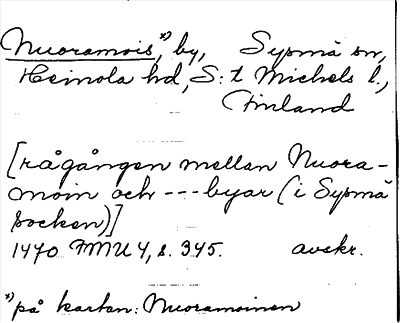 Nuoramois,*) by, Sysmä sn,
Heinola hd, S:t Michels l.,
Finland
[rågången mellan Nuora-
moin och --- byar (i Sysmä
socken)]
1470 FMU 4, s. 345. avskr.
*) på kartan: Nuoramoinen